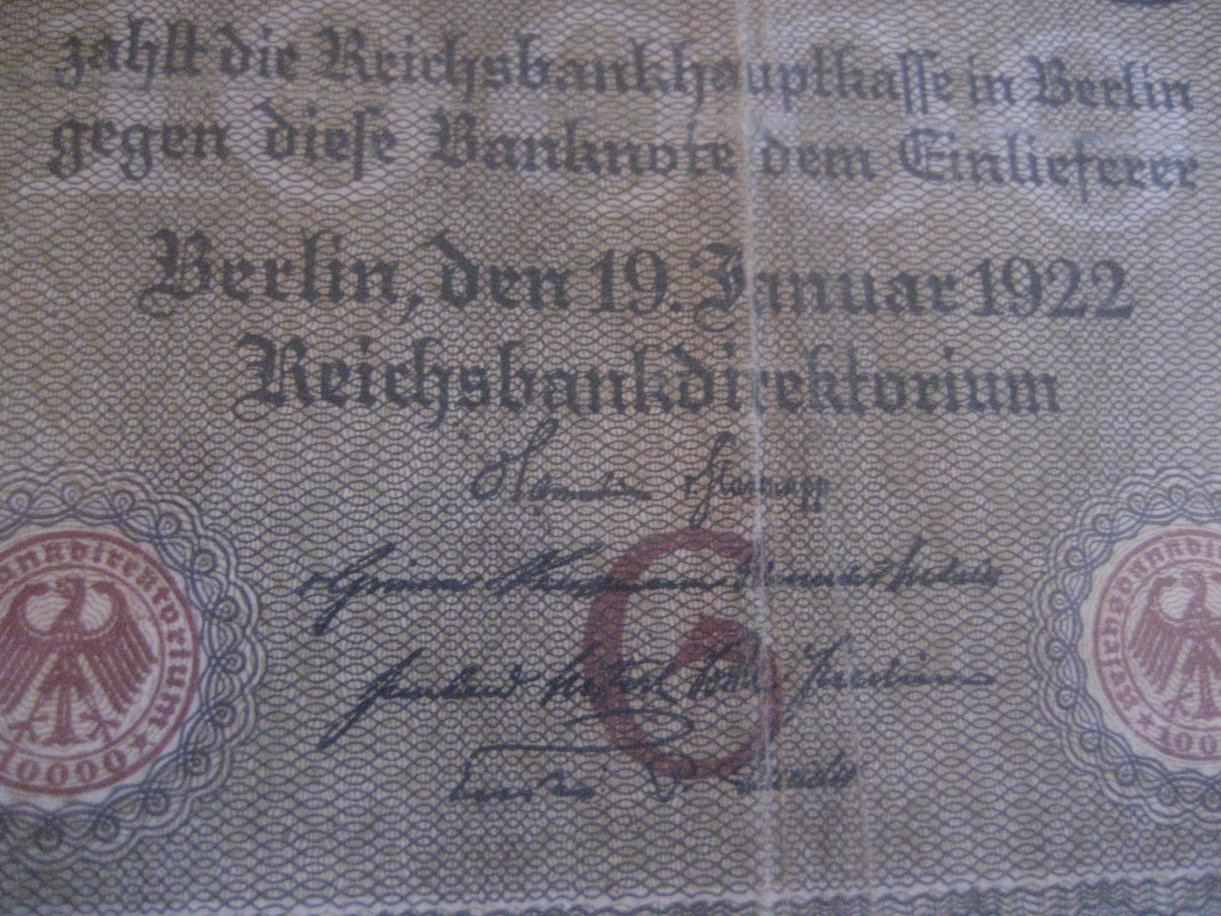 zahlt die Reichsbankhauptkasse in Berlin
gegen diese Banknote dem Einlieferer
Berlin, den 19. Januar 1922
Reichsbankdirektorium
G
bankdirektorium *
10000
Reichsbankdi
* 100